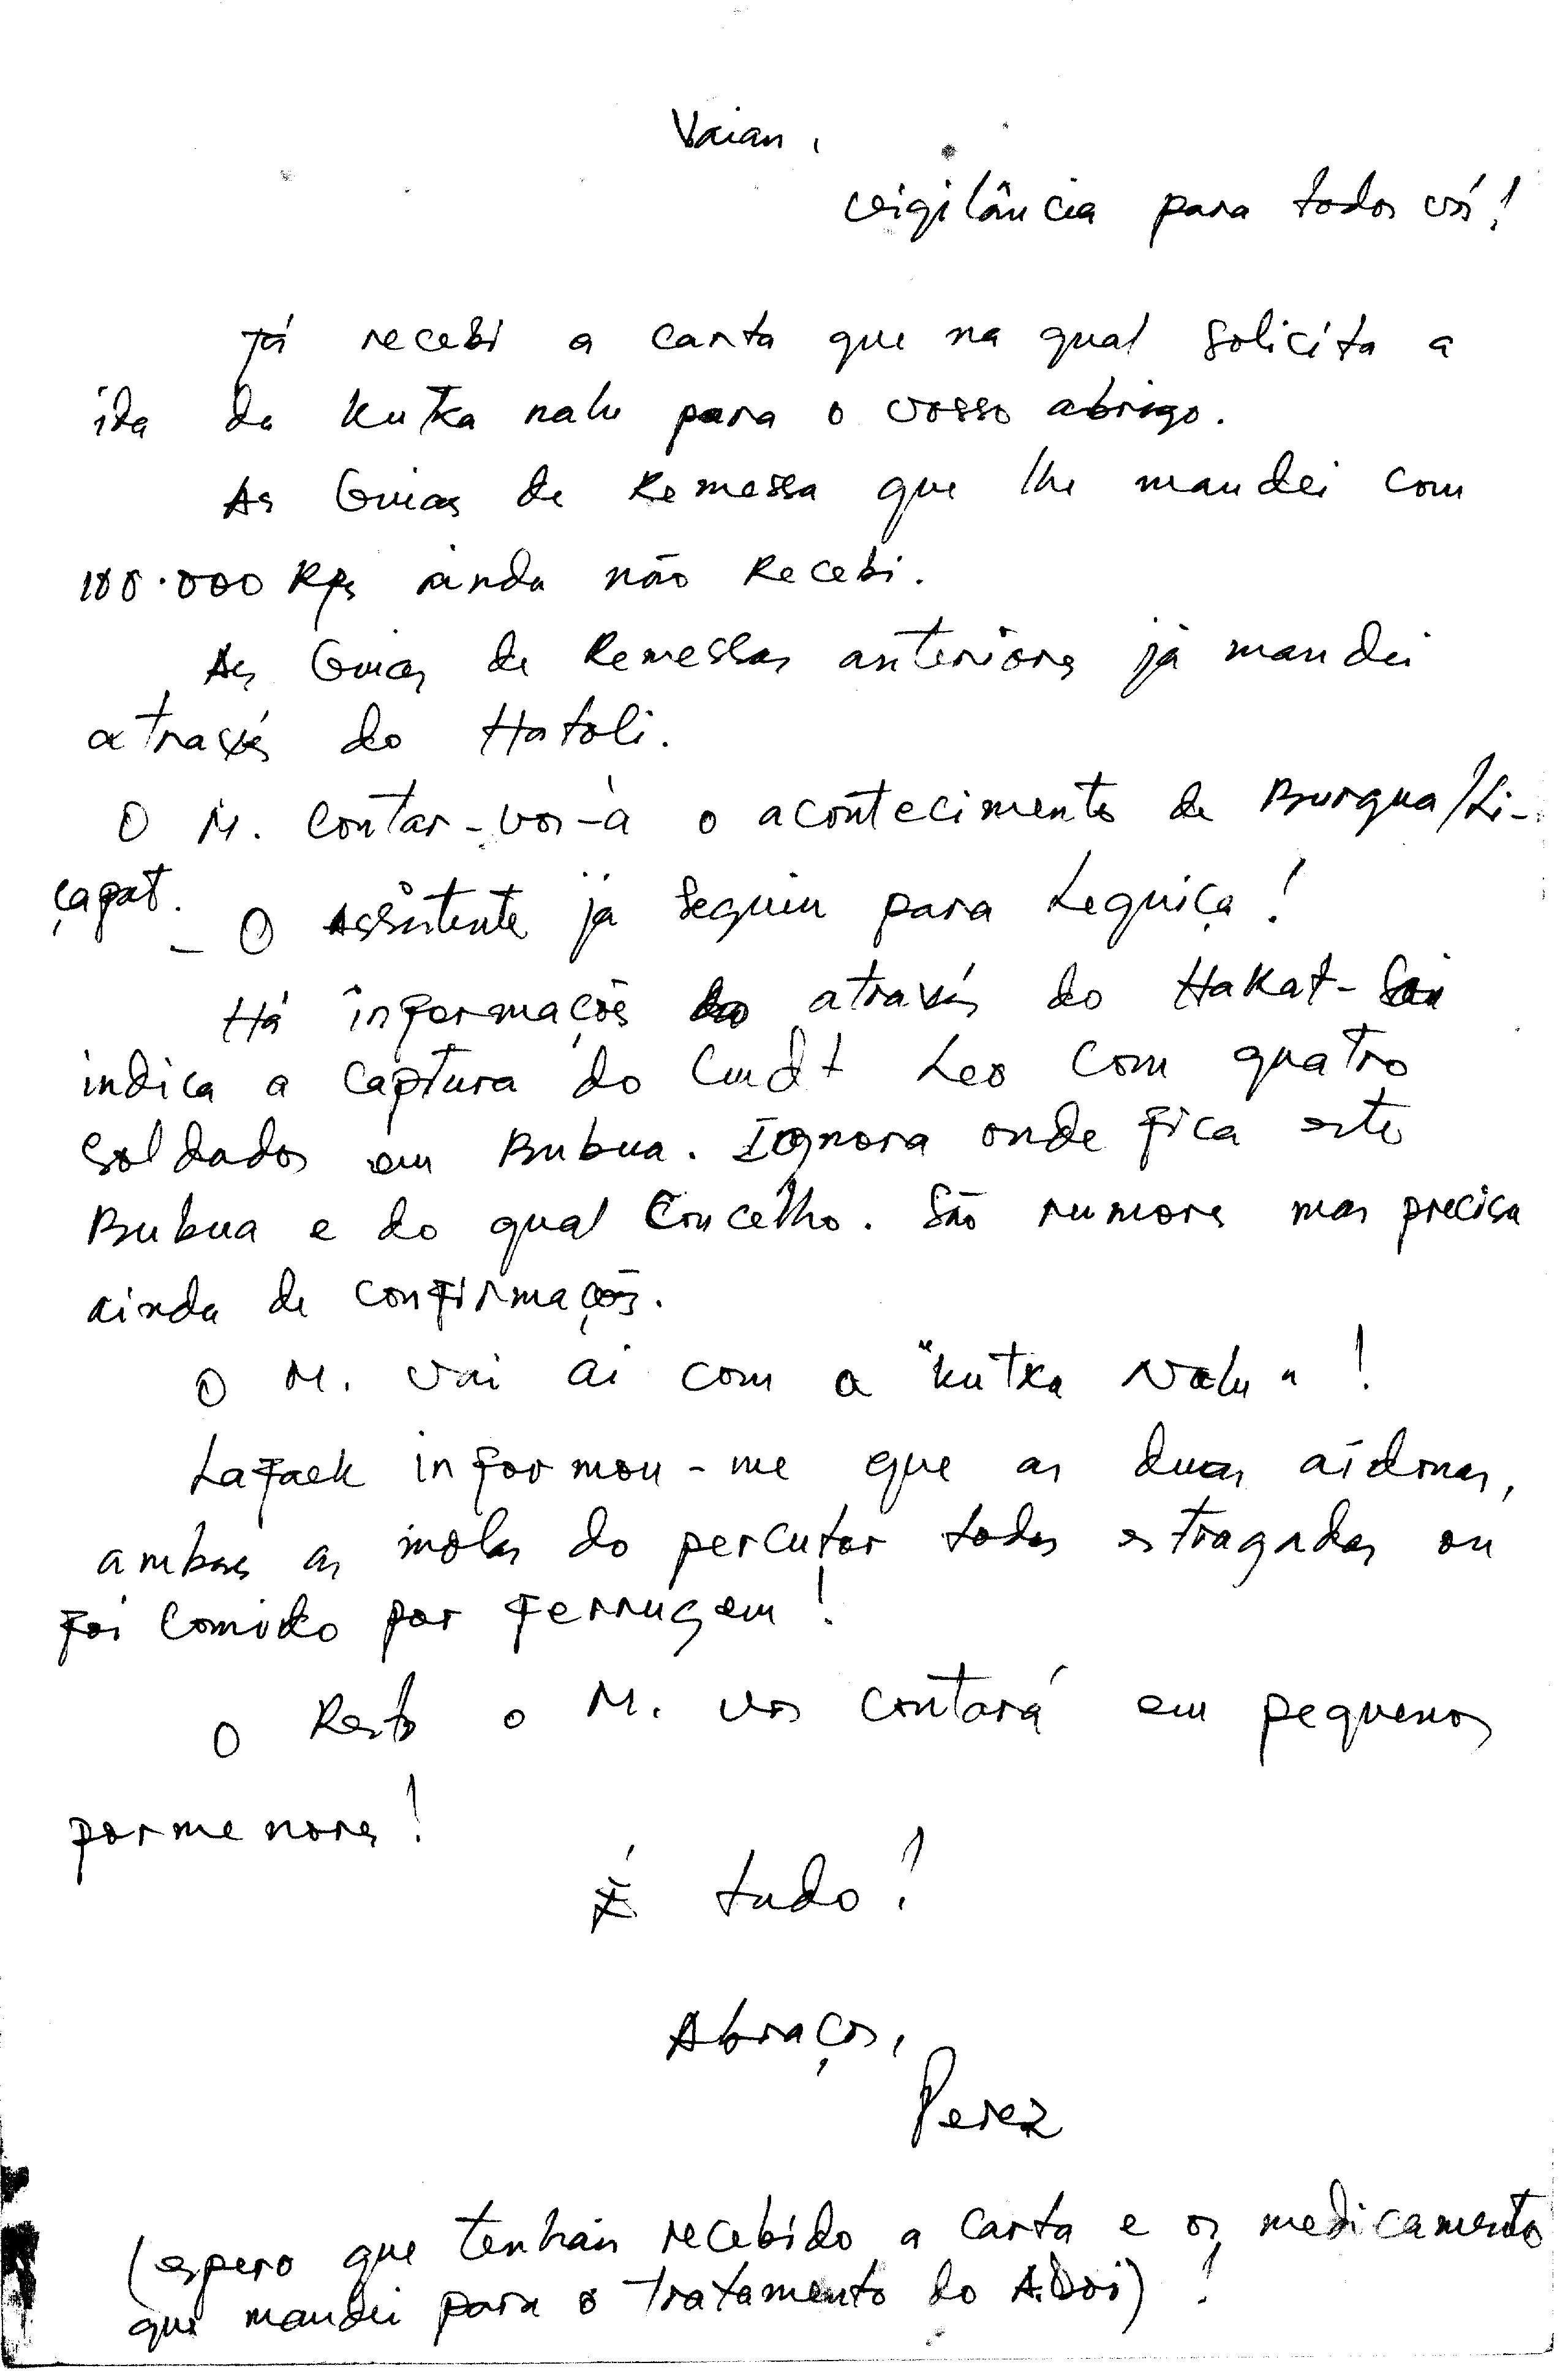 Vaian,
Vigilância para todos vós!
Já recebi a carta que na qual solicita a
ida da Kutka nalu para o vosso abrigo.
As Guias de Remessa que lhe mandei com
100.000 Rps ainda não Recebi.
As Guias de Remessas anteriores já mandei
através do Hatoli.
O M. contar-vos-á o acontecimento de Burgua/Li-
çapat. - O Assistente já seguiu para Leguiça!
Há informações através do Hakat-Sai
indica a captura do Cmdt Leo com quatro
soldados em Bubua. Ignora onde fica este
Bubua e do qual Concelho. São rumores mas precisa
ainda de confirmações.
O M. vai aí com a "Kutka Nalu"!
Lafaek informou-me que as duas aídonas,
ambas as molas do percutor todas estragadas ou
foi comido por ferrugem!
O Resto o M. vos contará em pequenos
pormenores!
É tudo!
Abraços,
Perez
(espero que tenham recebido a carta e os medicamentos
que mandei para o tratamento do A.Doi)!